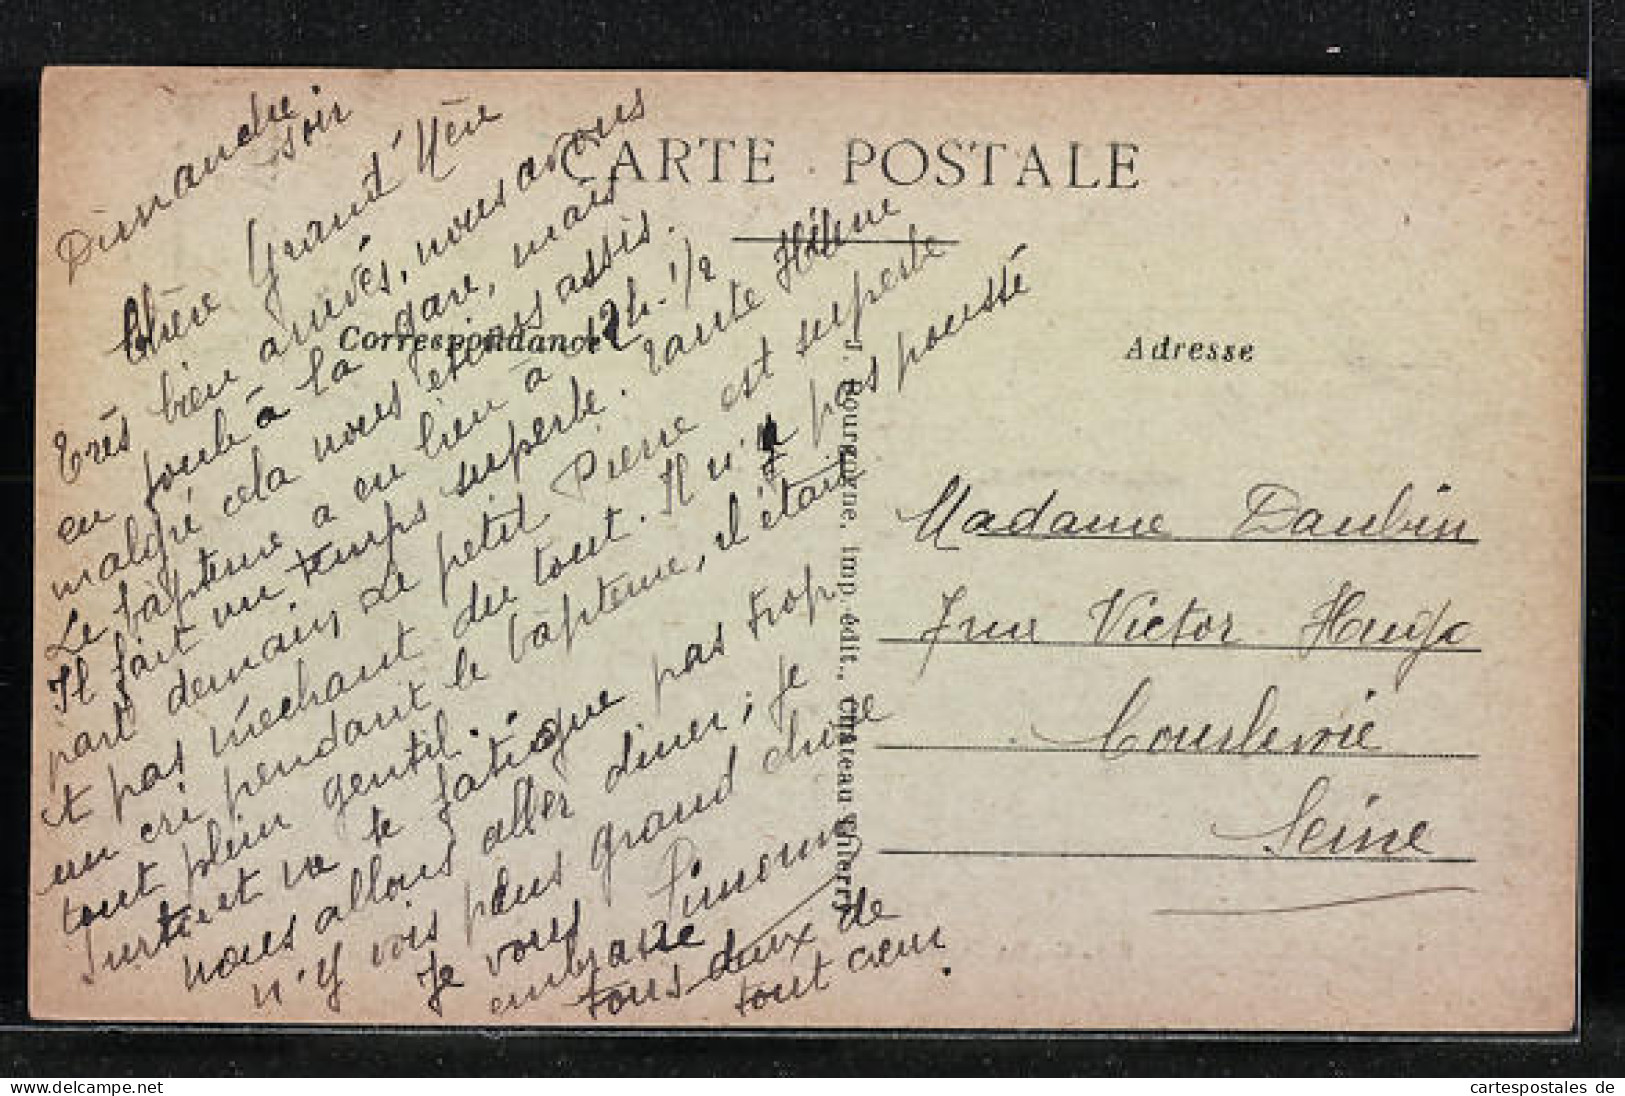 CARTE POSTALE
Correspondance
Adresse
Dimanche
soir
Chère Grand'Mère
Très bien arrivés, nous avons
eu foule à la gare, mais
malgré cela nous étions assis.
Le bàpteme a eu lieu à 12h.1/2
Il fait un temps superbe. Tante Hélène
part demain, Le petit Pierre est superbe
et pas méchant du tout. Il n'y pas poussé
un cri pendant le bàpteme, il était
tout plein gentil.
Surtout ne te fatigue pas trop
nous allons aller diner ; Je
n'y vois plus grand chose
Je vous Simonne
embrasse
tous deux de
tout cœur.
J. Bourgogne, imp. édit., Château-Thierry
Madame Daubin
7 rue Victor Hugo
Courbevoie
Seine
cartespostales de